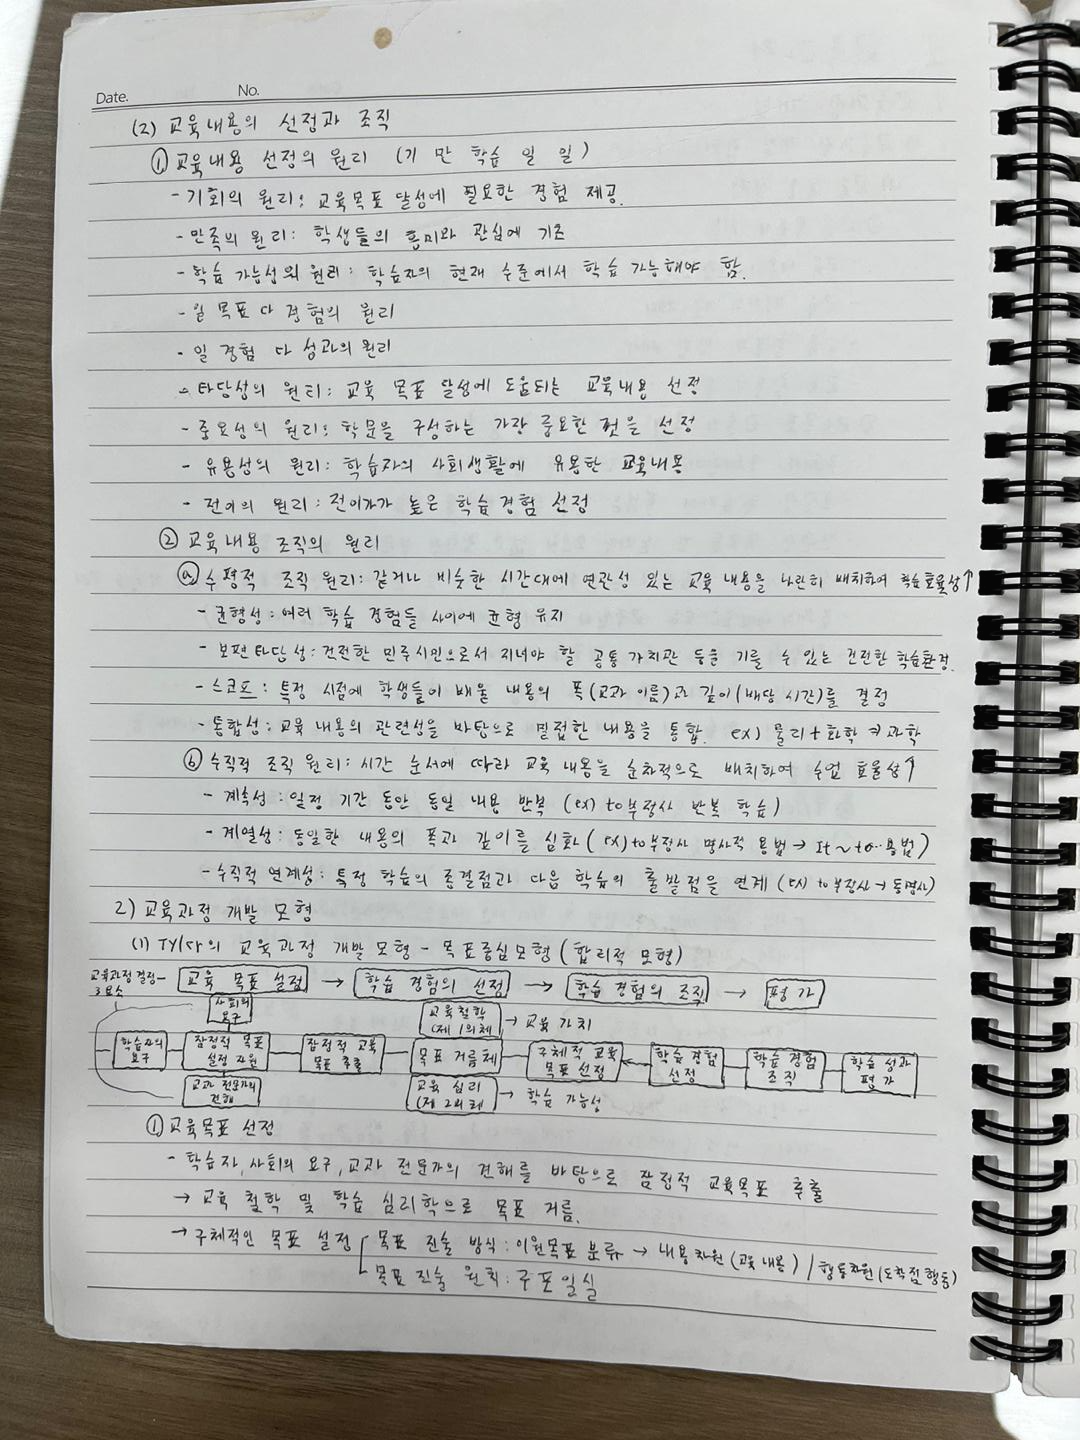 Date. No.
(2) 교육내용의 선정과 조직
① 교육내용 선정의 원리 (기 만 학습 일 일)
- 기회의 원리: 교육목표 달성에 필요한 경험 제공.
- 만족의 원리: 학생들의 흥미와 관심에 기초
- 학습 가능성의 원리: 학습자의 현재 수준에서 학습 가능해야 함.
- 일 목표 다 경험의 원리
- 일 경험 다 성과의 원리
- 타당성의 원리: 교육 목표 달성에 도움되는 교육내용 선정
- 중요성의 원리: 학문을 구성하는 가장 중요한 것을 선정
- 유용성의 원리: 학습자의 사회생활에 유용한 교육내용
- 전이의 원리: 전이가가 높은 학습경험 선정
② 교육내용 조직의 원리
ⓐ 수평적 조직 원리: 같거나 비슷한 시간대에 연관성 있는 교육 내용을 나란히 배치하여 학습효율성↑
- 균형성: 여러 학습 경험들 사이에 균형 유지
- 보편타당성: 건전한 민주시민으로서 지녀야 할 공통 가치관 등을 기를 수 있는 건전한 학습환경.
- 스코프: 특정 시점에 학생들이 배울 내용의 폭(교과 이름)과 깊이(배당 시간)를 결정
- 통합성: 교육 내용의 관련성을 바탕으로 밀접한 내용을 통합. ex) 물리+화학 ⇒ 과학
ⓑ 수직적 조직 원리: 시간 순서에 따라 교육 내용을 순차적으로 배치하여 수업 효율성↑
- 계속성: 일정 기간 동안 동일 내용 반복 (ex) to부정사 반복 학습)
- 계열성: 동일한 내용의 폭과 깊이를 심화 (ex) to부정사 명사적 용법 → It ~ to.. 용법)
- 수직적 연계성: 특정 학습의 종결점과 다음 학습의 출발점을 연계 (ex) to부정사 → 동명사)
2) 교육과정 개발 모형
(1) Tyler의 교육과정 개발 모형 - 목표중심모형 (합리적 모형)
교육과정 결정 3요소
교육 목표 설정 → 학습 경험의 선정 → 학습 경험의 조직 → 평가
사회의 요구
교육철학 (제1의체) → 교육 가치
학습자의 요구
잠정적 목표 설정 자원
잠정적 교육 목표 추출
목표 거름체
구체적 교육 목표 선정
학습 경험 선정
학습 경험 조직
학습 성과 평가
교과 전문가의 견해
교육 심리 (제2의체) → 학습 가능성
① 교육목표 선정
- 학습자, 사회의 요구, 교과 전문가의 견해를 바탕으로 잠정적 교육목표 추출
→ 교육 철학 및 학습 심리학으로 목표 거름.
→ 구체적인 목표 설정 목표 진술 방식: 이원목표 분류 → 내용차원(교육내용) / 행동차원(도착점행동)
목표 진술 원칙: 구포일실